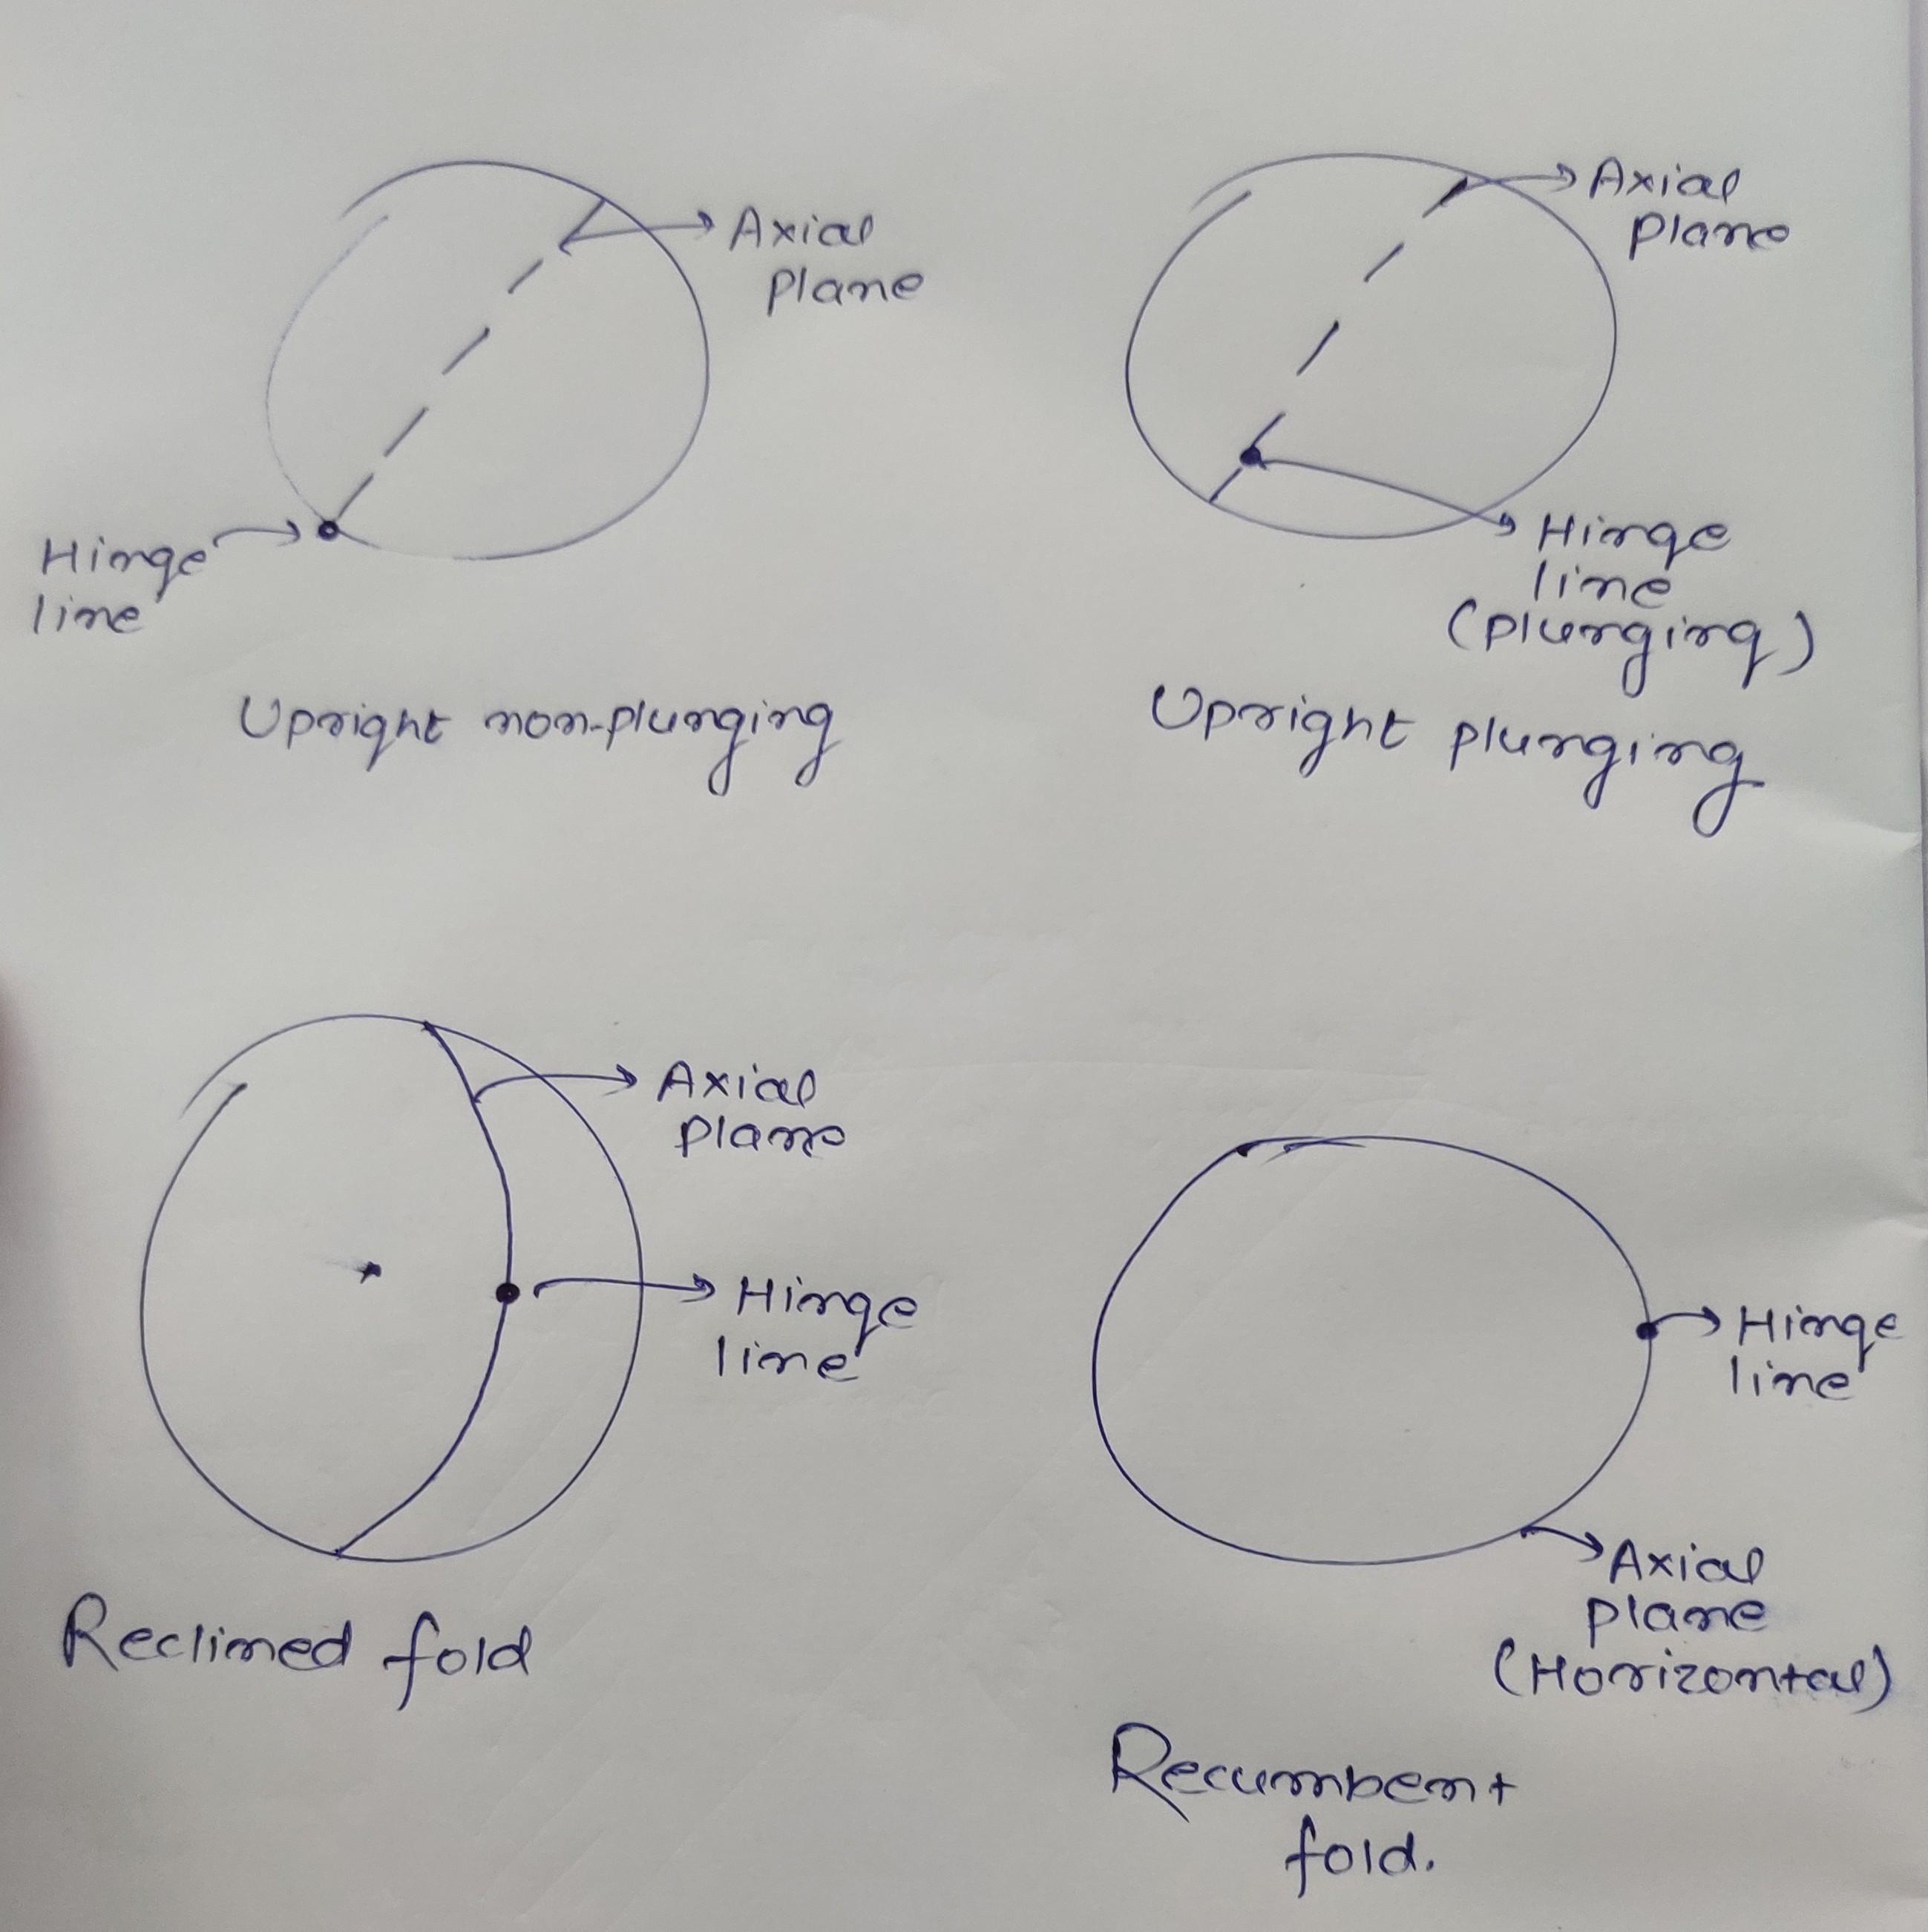 Axial
plane
Hinge
line
Upright non-plunging
Axial
plane
Hinge
line
(plunging)
Upright plunging
Axial
plane
Hinge
line
Reclined fold
Hinge
line
Axial
plane
(Horizontal)
Recumbent
fold.